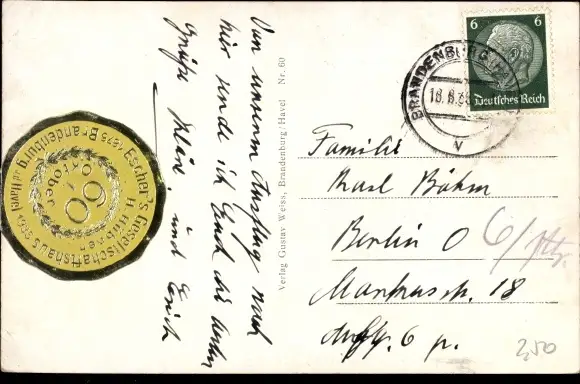 Von unserem Ausflug nach
hier sende ich Euch die besten
Grüße Klein. und Erich
Verlag Gustav Weiss, Brandenburg/Havel Nr. 60
6 6
Deutsches Reich
BRANDENBURG (HAVEL)
18.8.
v
Familie
Karl Böhm
Berlin O
Markusstr. 18
Aufg. 6 p.
2,50
Escher's Gesellschaftshaus
1875 Brandenburg (Havel) 1935
H Hülsen
60
Oktober